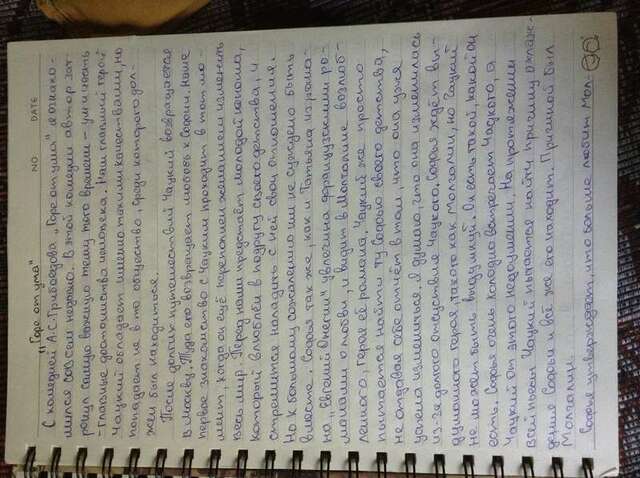 NO DATE
"Горе от ума"
С комедией А.С.Грибоедова „Горе от ума" я ознако-
мился совсем недавно. В этой комедии автор зат-
ронул самую важную тему того времени - ум и честь
- главные достоинства человека. Наш главный герой
Чацкий обладает именно такими качествами, но
попадает не в то общество, среди которого дол-
жен был находиться.
После долгих путешествий Чацкий возвращается
в Москву. Туда его возвращает любовь к Софьи, наше
первое знакомство с Чацким проходит в тот мо-
мент, когда он ещё переполнен желанием изменить
весь мир. Перед нами предстаёт молодой юноша,
который влюблён в подругу своего детства, и
стремится наладить с ней свои отношения.
Но к большому сожалению им не суждено быть
вместе. Софья так же, как и Татьяна из рома-
на „Евгений Онегин" увлечена французскими ро-
манами о любви и видит в Молчалине возлюб-
ленного, героя её романа. Чацкий же просто
пытается найти ту Софью своего детства,
не отдавая себе отчёт в том, что она уже
успела измениться. Я думаю, что она изменилась
из-за долгого отсутствия Чацкого. Софья ждёт вы-
думанного героя, такого как Молчалин, но Чацкий
не может быть выдумкой. Он есть такой, какой он
есть. Софья очень холодно встречает Чацкого, а
Чацкий от этого недоумении. На протяжении
всей пьесы Чацкий пытается найти причину охлаж-
дения Софьи и всё же его находит. Причиной был
Молчалин.
Софья утверждает, что больше любит Мол-